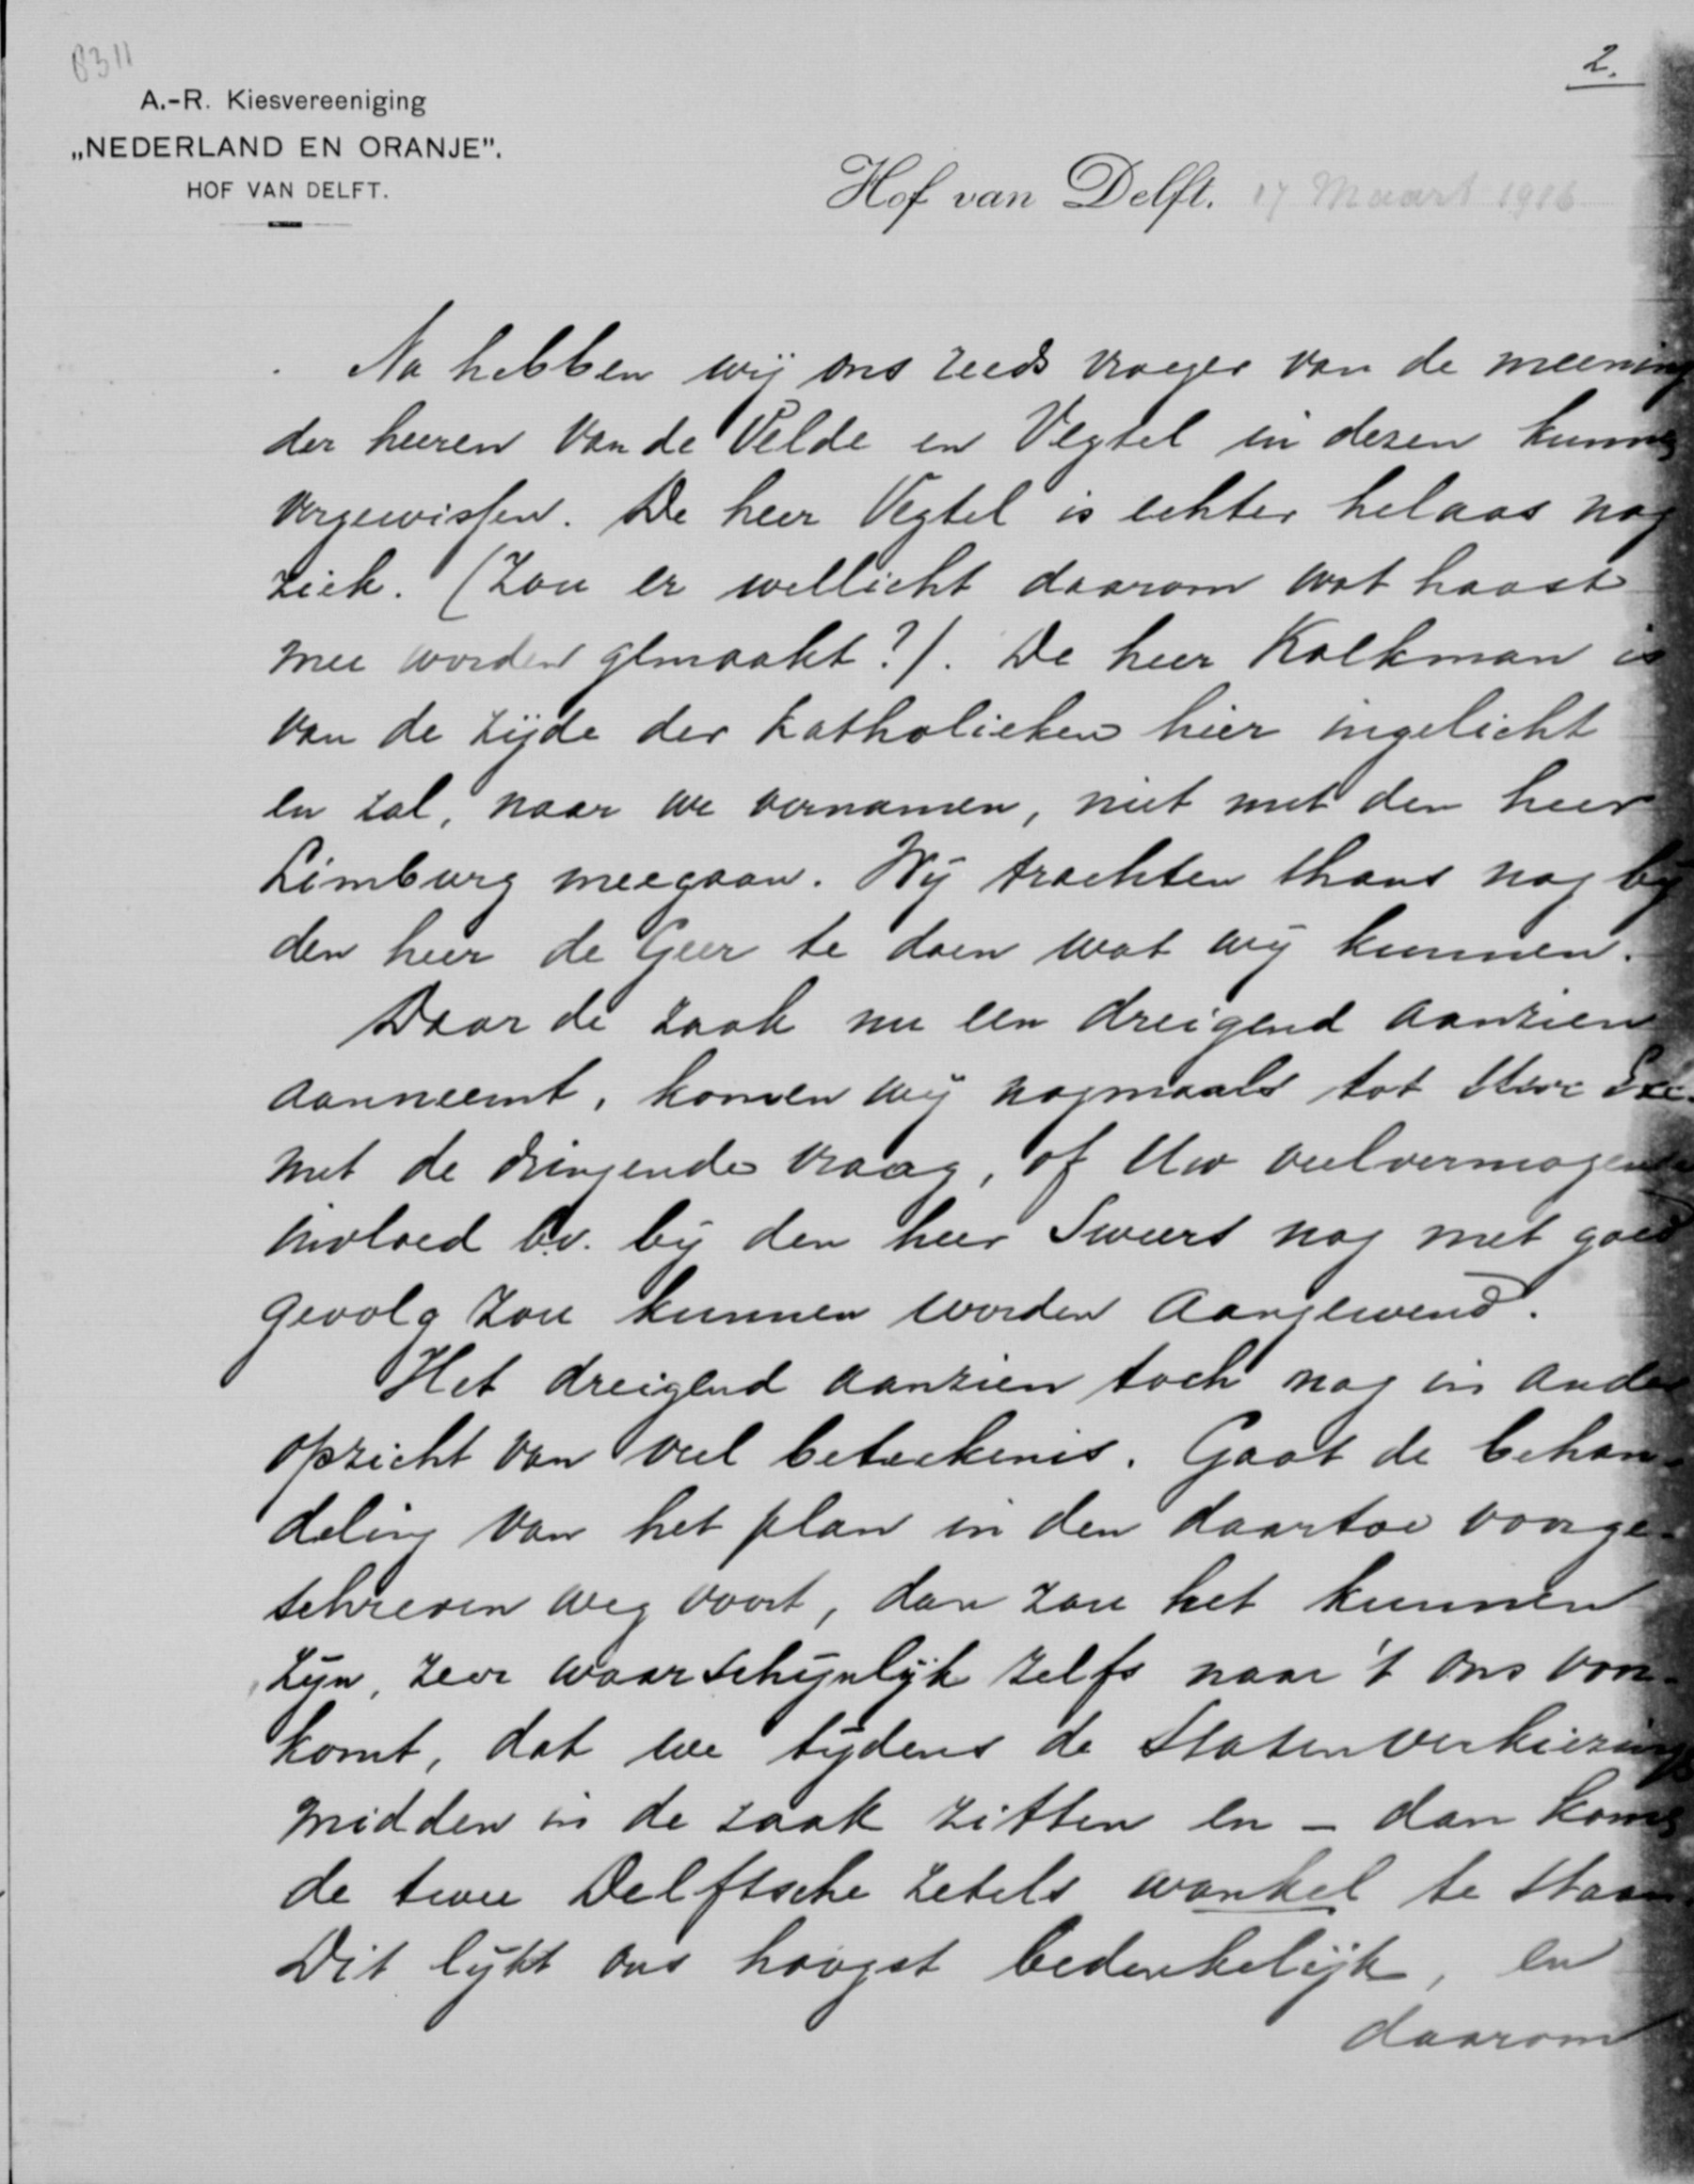 B311
2.
A.-R. Kiesvereeniging
„NEDERLAND EN ORANJE".
HOF VAN DELFT.
Hof van Delft. 17 Maart 1916
Nu hebben wij ons reeds vroeger van de meening
der heeren van de Velde en Vegtel in dezen kunnen
vergewissen. De heer Vegtel is echter helaas nog
ziek. (Zou er wellicht daarom wat haast
mee worden gemaakt?). De heer Kolkman is
van de zijde der Katholieken hier ingelicht
en zal, naar we vernamen, niet met den heer
Limburg meegaan. Wij trachten thans nog bij
den heer de Geer te doen wat wij kunnen.
Daar de zaak nu een dreigend aanzien
aanneemt, komen wij nogmaals tot Uwe Exc.
met de dringende vraag, of Uw veelvermogende
invloed bv. bij den heer Sweerts nog met goed
gevolg zou kunnen worden aangewend.
Het dreigend aanzien toch nog in ander
opzicht van veel beteekenis. Gaat de behan-
deling van het plan in den daartoe voorge-
schreven weg voort, dan zou het kunnen
zijn, zeer waarschijnlijk zelfs naar 't ons voor-
komt, dat we tijdens de Statenverkiezing
midden in de zaak zitten en - dan komen
de twee Delftsche zetels wankel te staan.
Dit lijkt ons hoogst bedenkelijk, en
daarom